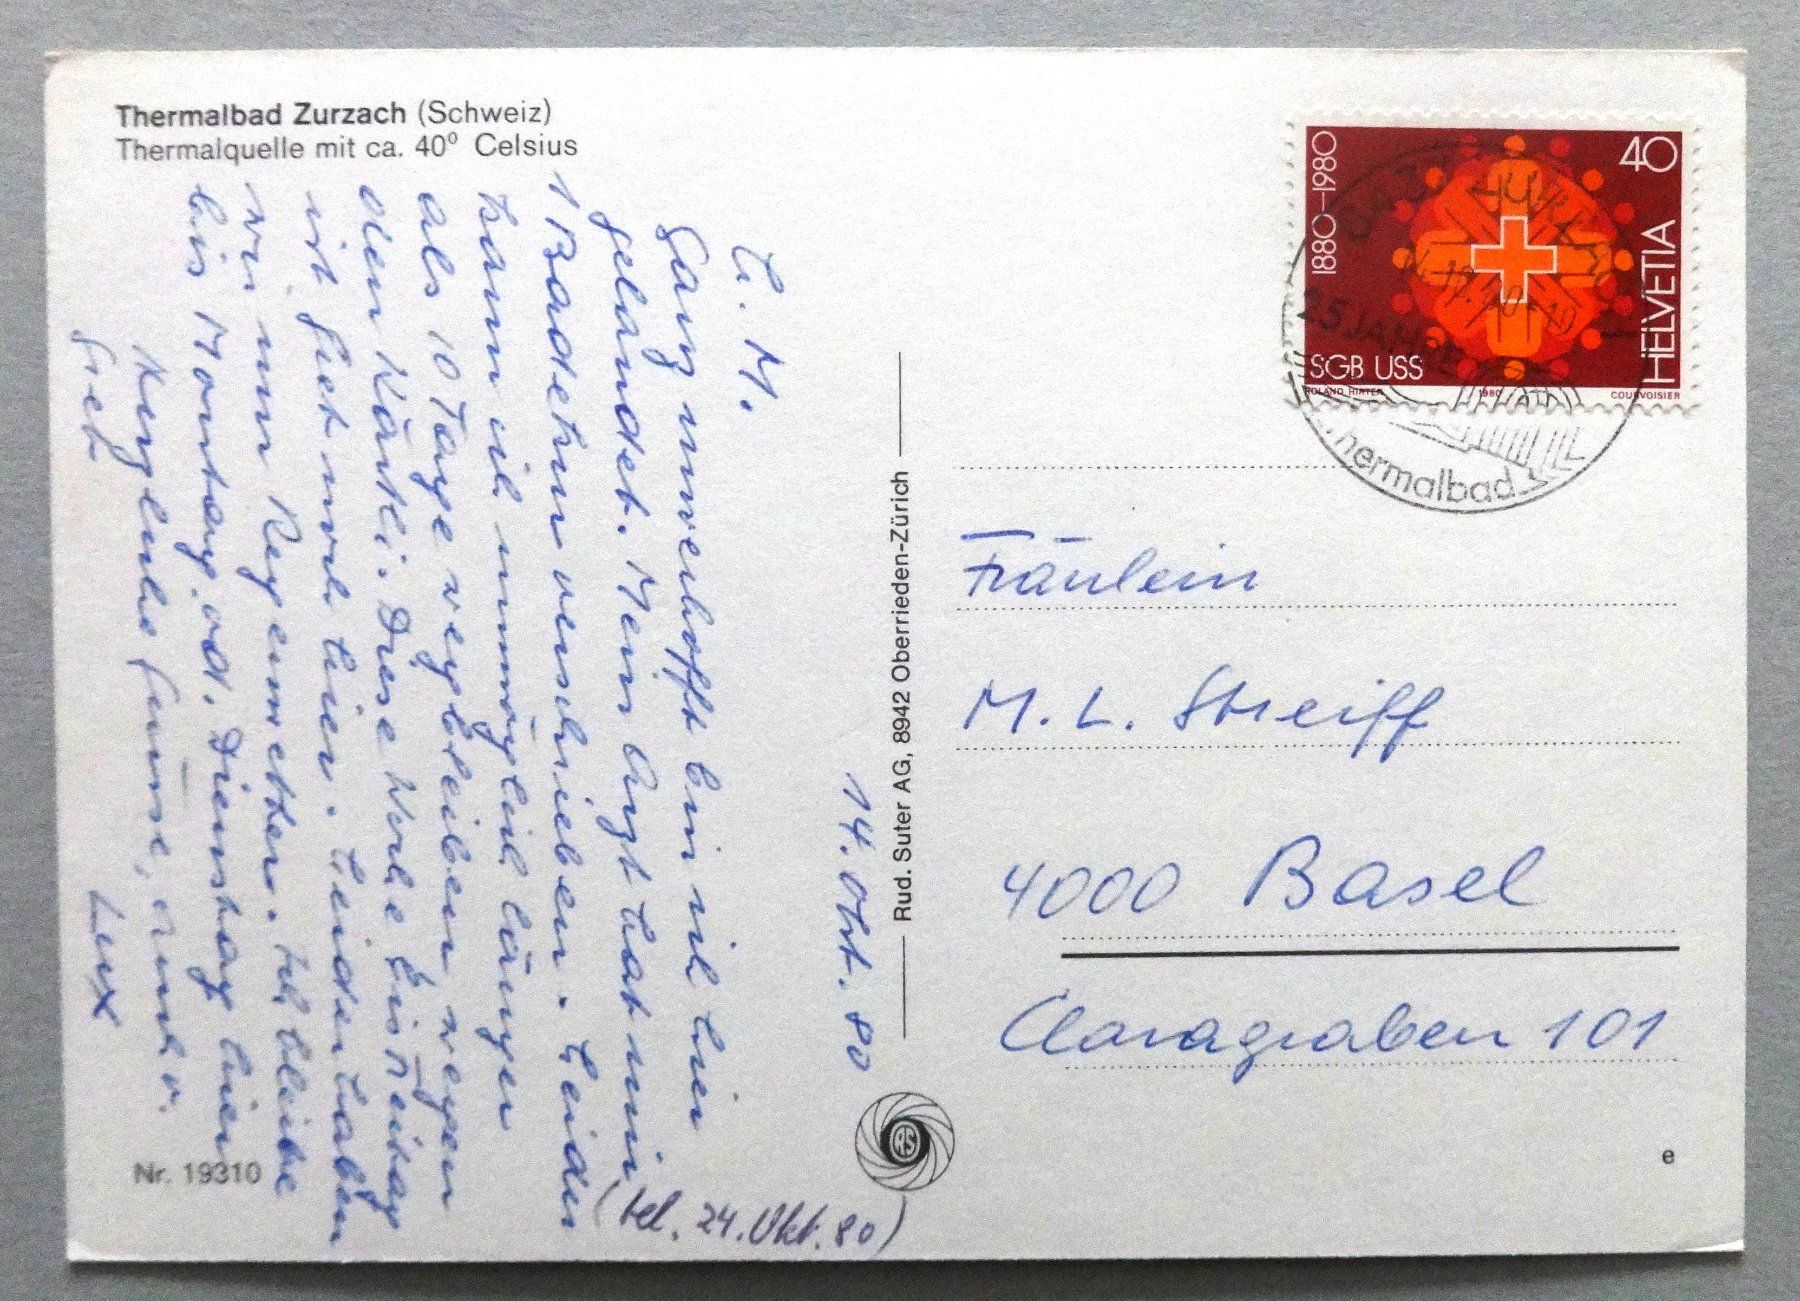 Thermalbad Zurzach (Schweiz)
Thermalquelle mit ca. 40° Celsius
14. Okt. 80
L. M.
Ganz unverhofft bin ich hier
gelandet. Mein Arzt hat mir
1 Badekur verschrieben. Leider
kann ich unmöglich länger
als 10 Tage wegbleiben wegen
dem Diese Woche bis Freitag
ist Get noch hier. Leider haben
wir nur Regenwetter. Ich bleibe
bis Montag od. Dienstag hier
Herzliche Grüsse, auch v.
Gret. Lux
(tel. 24. Okt. 80)
Nr. 19310
Rud. Suter AG, 8942 Oberrieden-Zürich
RS
1880–1980
40
HELVETIA
SGB USS
ROLAND HIRTER 1980 COURVOISIER
ZURZACH
25 JAHRE
Thermalbad
Fräulein
M. L. Streiff
4000 Basel
Claragraben 101
e